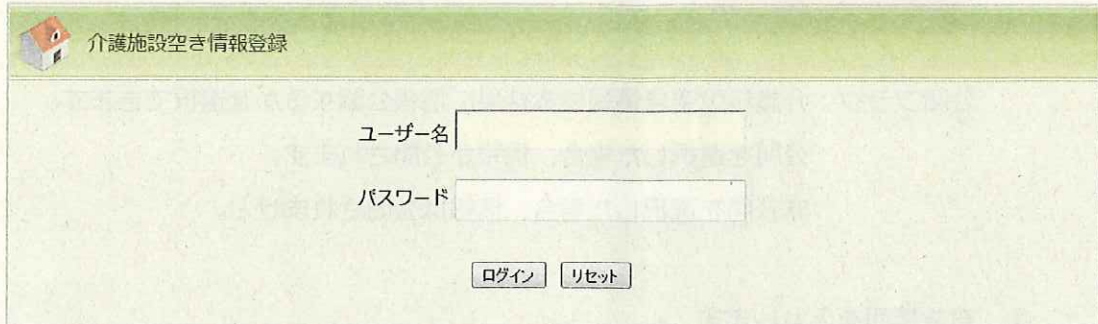 介護施設空き情報登録
ユーザー名
パスワード
ログイン リセット